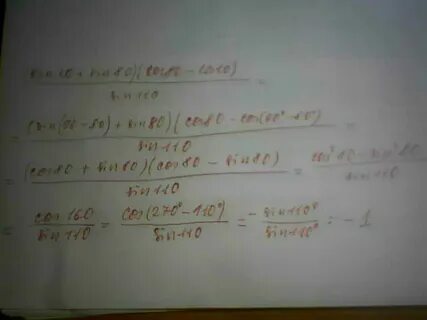 (sin 10 + sin 80)(cos 80 - cos 10) / sin 110 =
= (sin(90 - 80) + sin 80)(cos 80 - cos(90° - 80°) / sin 110 =
= (cos 80 + sin 80)(cos 80 - sin 80) / sin 110 = cos² 80 - sin² 80 / sin 110
= cos 160 / sin 110 = cos(270° - 110°) / sin 110 = - sin 110° / sin 110° = - 1